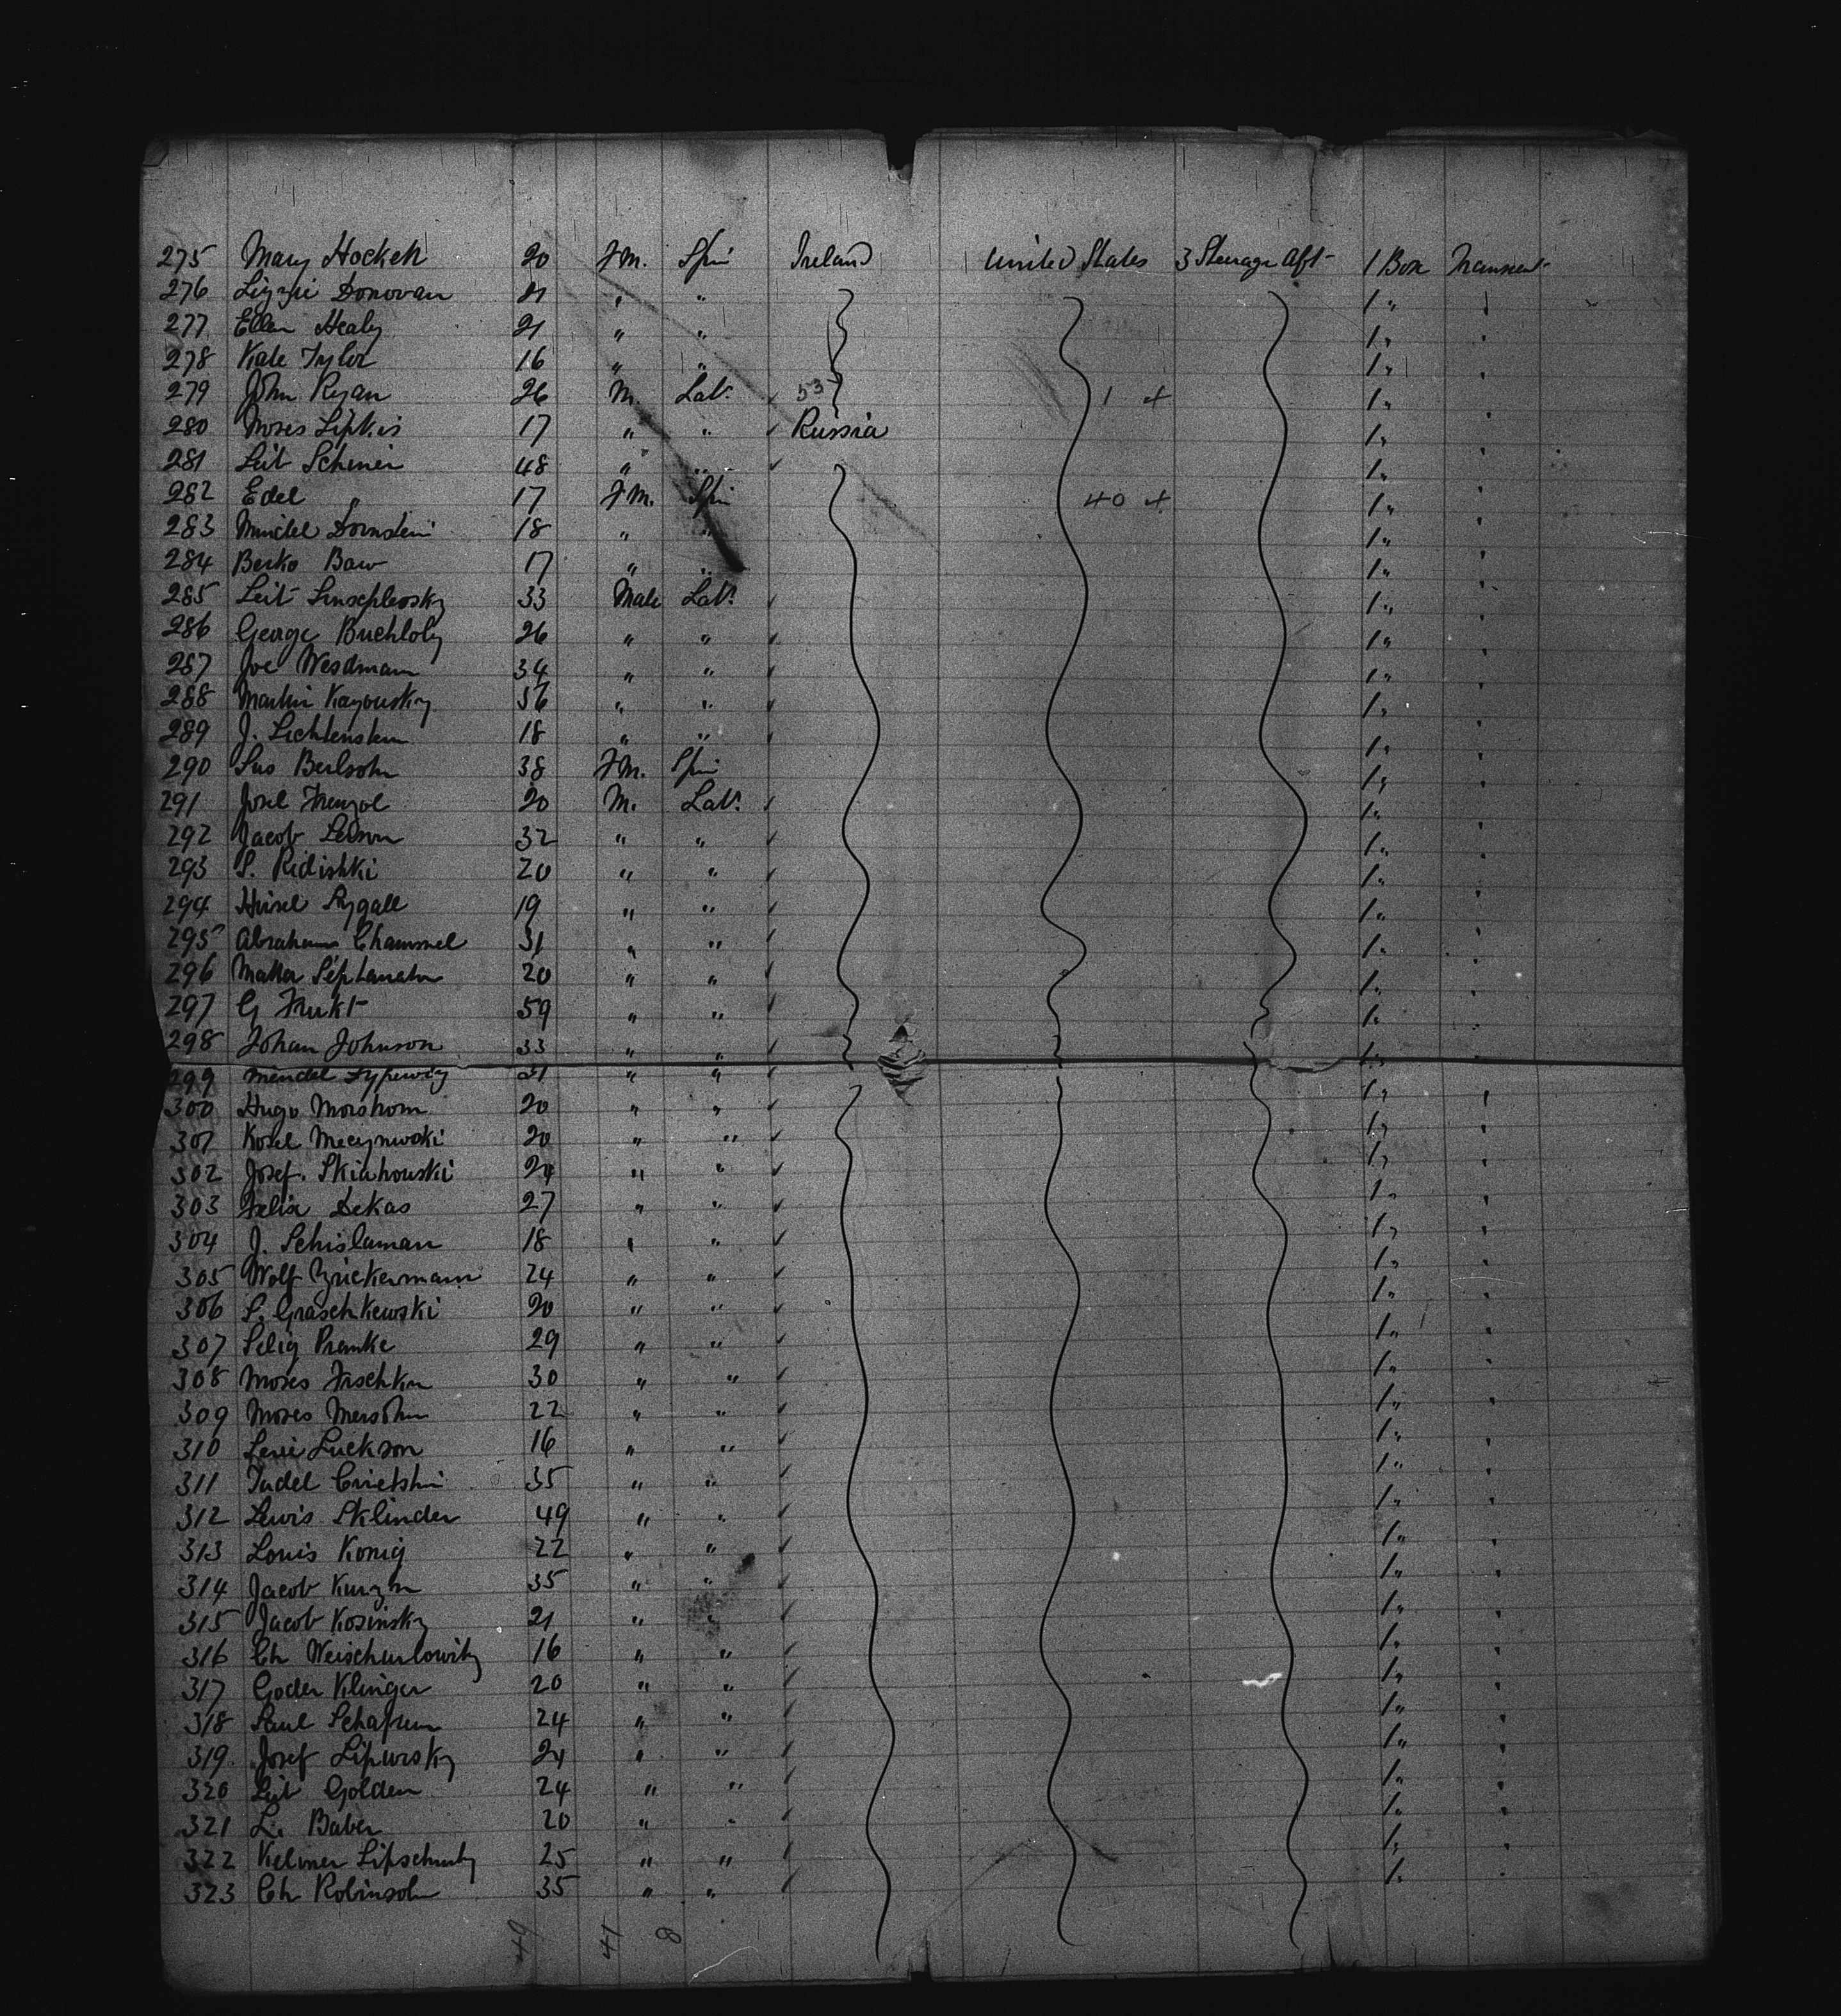 275 Mary Hockett 20 Fm. Spin Ireland United States 3 Steerage Aft 1 Box Transient
276 Lizzie Donovan 21 " " 1 " "
277 Ellen Healy 21 " " 1 " "
278 Kate Tylor 16 " " 1 " "
279 John Ryan 26 M. Labr. 53 1 + 1 " "
280 Moses Lipkis 17 " " Russia 1 " "
281 Leib Schmer 48 " " 1 " "
282 Edel " 17 Fm. Spin 40 + 1 " "
283 Mindel Dornstein 18 " " 1 " "
284 Berko Baw 17 " " 1 " "
285 Leib 33 Male Labr. 1 " "
286 George Buchholz 26 " " 1 " "
287 Joe Wesdmann 34 " " 1 " "
288 Martin Kayousky 36 " " 1 " "
289 J. Lichtenstein 18 " " 1 " "
290 Berlsohn 38 Fm. Spin 1 " "
291 Josel Frenzol 20 M. Labr. 1 " "
292 Jacob Leison 32 " " 1 " "
293 S. Ridishki 20 " " 1 " "
294 Hirsel Rygall 19 " " 1 " "
295 Abraham Chammel 31 " " 1 " "
296 20 " " 1 " "
297 G Frukt 59 " " 1 " "
298 Johan Johnson 33 " " 1 " "
299 Mendel 21 " " 1 " "
300 Hugo Morshom 20 " " 1 " "
301 Kosel Mecynwski 20 " " 1 " "
302 Josef. Skiahouski 24 " " 1 " "
303 Felix Dekas 27 " " 1 " "
304 J. Schislaman 18 " " 1 " "
305 Wolf Zuckermann 24 " " 1 " "
306 S. Graschkewski 20 " " 1 " "
307 Selig Premke 29 " " 1 " "
308 Moses Frschkin 30 " " 1 " "
309 Moses Mersohn 22 " " 1 " "
310 Levi Luckson 16 " " 1 " "
311 Judel 35 " " 1 " "
312 Lewis Sklinder 49 " " 1 " "
313 Louis Konig 22 " " 1 " "
314 Jacob Kurzin 35 " " 1 " "
315 Jacob Kosinsky 21 " " 1 " "
316 Ch Weischurlowitz 16 " " 1 " "
317 Goder Klinger 20 " " 1 " "
318 Saul Schafrun 24 " " 1 " "
319 Josef Lipwisky 24 " " 1 " "
320 Leib Golden 24 " " 1 " "
321 Li Baber 20 " " 1 " "
322 Kelmer Lipschutz 25 " " 1 " "
323 Ch Robinsohn 35 " "
49 41 8